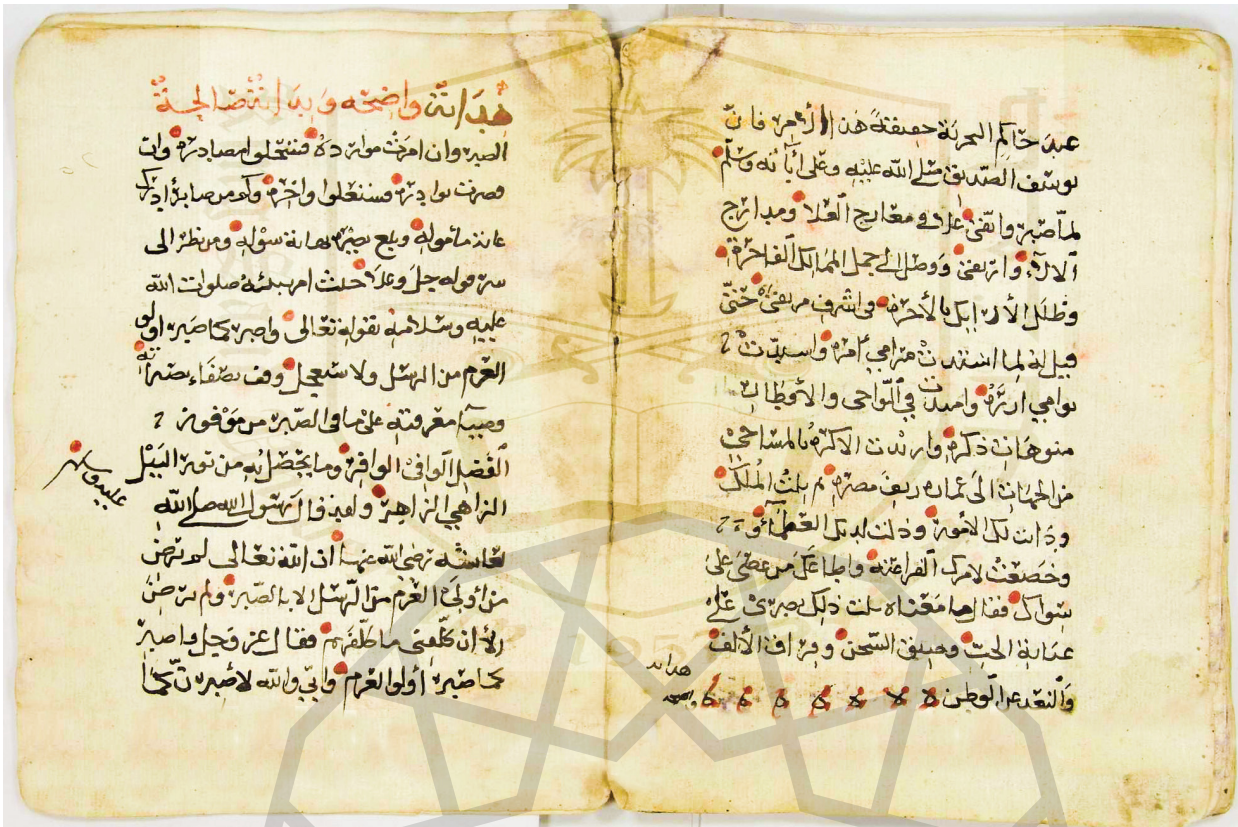 عند حاكم التجربة حقيقة هذا الأمر فان
يوسف الصديق صلى الله عليه وعلى آبائه وسلم
لما صبر واتقى علا في معارج العلا ومدارج
الآلاء وارتقى ووصل الى اجمل الممالك الفاخرة
وظلل الأرائك بالآخرة في اشرف مرتقى حتى
قيل له لما امتدت مرامي أمره واستبدت
نواهي وامتدت في النواحي والأقطار
منوهات ذكره واردت الاكره بالمساحي
من الجهات الى عمارة ريف مصره بم نلت الملك
ودانت لك الأمور وذلت لديك العظماء و
وخضعت لامرك الفراعنة واطاعك من عصى على
سواك فقال ما معناه نلت ذلك بصبري على
غيابة الجب وضيق السجن وفراق الألف
والبعد عن الوطن
هداية
واضحة
هداية واضحة وبداية صالحة
الصبر وان امرت موارده فستحلوا مصادره وان
قصرت بوادره فستعلوا واخره وكم من صابر أدرك
غاية مأموله وبلغ بصبره نهاية سوله ومن نظر الى
سر قوله جل وعلا حيث امر نبيه صلوات الله
عليه وسلامه بقوله تعالى واصبر كما صبر اولو
العزم من الرسل ولا تستعجل وقف بصفاء بصيرته
معرفته على ما في الصبر من موفور
الفضل الوافي الوافر وما يحصل به من نور النبل
الزاهي الزاهر ولقد قال رسول الله صلى الله
عليه وسلم
لعائشة رضي الله عنها ان الله تعالى لم يرض
من أولي العزم من الرسل الا بالصبر ولم يرض
الا ان كلفني ما كلفهم فقال عز وجل واصبر
كما صبر أولوا العزم واني والله لأصبرن كما